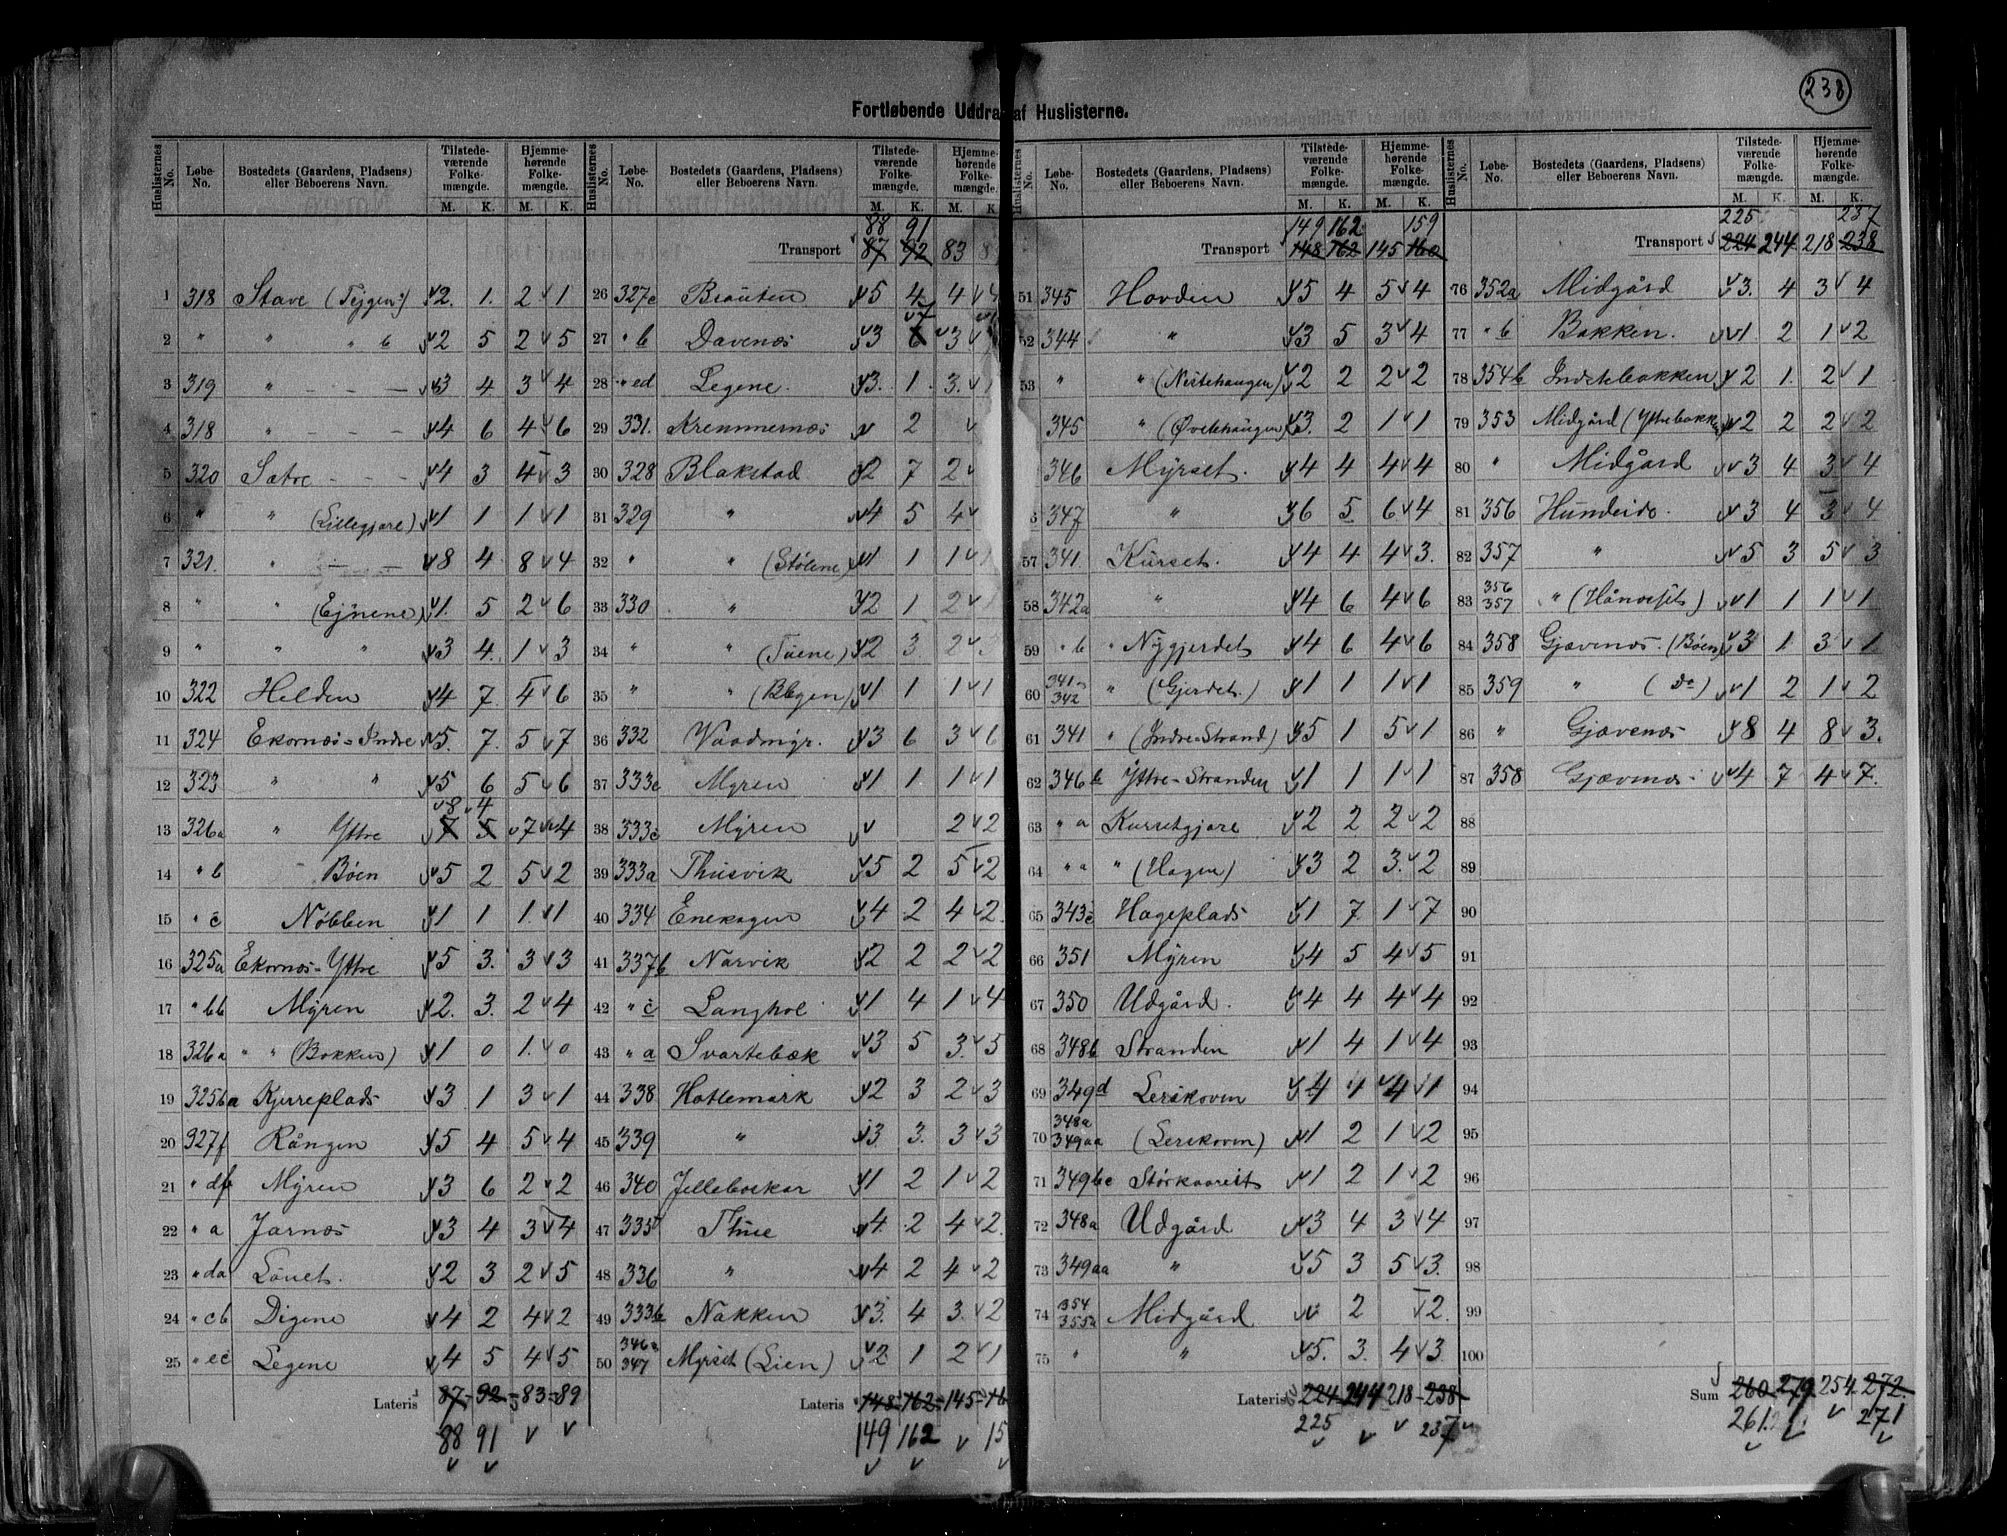 238
Fortløbende Uddra af Huslisterne.
Huslisternes No. Løbe-No. Bostedets (Gaardens, Pladsens) eller Beboerens Navn. Tilstedeværende Folkemængde. M. K. Hjemmehørende Folkemængde. M. K.
1 318 Stave (Tejgen:) 2. 1. 2 1
2 " " " b 2 5 2 5
3 319 " - - - 3 4 3 4
4 318 " - - - 4 6 4 6
5 320 Satre - - - 4 3 4 3
6 " " (Lillegjære) 1 1 1 1
7 321. " - - 8 4 8 4
8 " " (Ejnene) 1. 5 2 6
9 " " " 3 4. 1 3
10 322 Helden 4 7. 4 6
11 324 Ekornæs=Indre 5. 7. 5 7
12 323 " " 5 6 5 6
8 4
13 326a " Yttre 7 5 7 4
14 " b Bøen 5 2 5 2
15 " c Nøbben 1 1 1. 1
16 325a Ekornæs-Yttre 5 3. 3 3
17 " bb Myren 2. 3. 2 4
18 326a " " (Bakken) 1 0 1. 0
19 325ba Kjerreplads 3 1 3 1
20 327f Rången 5 4 5 4
21 " df Myren 3 6 2 2
22 " a Jarnæs 3 4 3 4
23 " da Lønet. 2 3 2 5
24 " cb Digene 4 2 4 2
25 " ec Legene 4 5 4 5.
Lateris 87 - 92 - 83 - 89
88 91
88 91
Transport 87 92 83 8
26 327c Brauten 5 4 4 4
7
27 " b Davenæs 3 6 3
28 " ed Legene. 3. 1. 3. 1
29 331. Kremmernæs 2
30 328 Blakstad 2 7 2
31 329 " 4 5 4
32 " " (Stølene) 1 1 1 1
33 330 " 2 1 2 1
34 " " (Tuene) 2 3 2 3
35 " " 1 1 1 1
36 332 Vaadmyr. 3 6 3 6
37 333c Myren 1 1 1 1
38 333c Myren 2 2
39 333a Thusvik 5 2 5 2
40 334 Enehagen 4 2 4 2.
41 337b Narvik 2 2 2 2
42 " c Langhol 1 4 1 4
43 " a Svartebæk 3 5 3. 5
44 338 Hatlemark 2 3 2 3
45 339 " 3 3. 3 3
46 340 Jelleboekar 1 2 1 2
47 335 Thue 4. 2 4 2.
48 336 " 4 2 4 2
49 333b Nakken 3. 4 3. 2
50 346a 347 Myrset (Lien) 2 1 2 1
Lateris 148 - 162 - 145 - 16
149 162 15
149 162 159
Transport 148 162 145 160
51 345 Hovden 5 4 5 4
52 344 " 3 5 3 4
53 " " (Nistehaugen) 2 2 2 2
345 " (Øvstehaugen) 3. 2 1 1
346 Myrset. 4 4 4 4
347 " 6 5 6 4
57 341. Kurset. 4 4 4 3.
58 342a " 4 6 4 6
59 " b " Nygjerdet 4 6 4 6
60 341- 342 " (Gjerdet.) 1 1 1 1
61 341 " (Indre-Strand) 5 1 5 1
62 346b Yttre-Stranden 1 1 1 1
63 " a Kursetgjære 2 2 2 2
64 " a " (Hagen) 3 2 3. 2
65 343c Hageplads 1 7 1 7
66 351 Myren 4 5 4 5
67 350 Udgård. 4 4 4 4
68 348b Stranden 1 4 1 4
69 349d Lerikoven 4 1 4 1
70 348a 349aa (Lerikoven) 1 2 1 2
71 349bc Størkaareit 1 2 1 2
72 348a Udgård 3 4 3 4
73 349aa " 5 3 5 3.
74 354 355a Midgård 2 2.
75 " " 5. 3. 4 3.
Lateris 224 - 244 218 - 238
225 237
225 237
Transport 224 244 218 238
76 352a Midgård 3. 4 3 4
77 " b Bakken. 1. 2 1 2
78 354b Indstebakken 2 1. 2 1
79 353 Midgård (Yttrebakken) 2 2 2 2
80 " Midgård 3 4 3 4
81 356 Hundeide. 3 4 3 4
82 357 " 5 3 5 3
83 356 357 " (Hånesset) 1 1 1 1
84 358 Gjævenæs. (Bøen) 3 1 3 1
85 359 " ( do ) 1 2 1 2
86 " Gjævenæs 8 4 8 3.
87 358 Gjævenæs - 4 7 4 7.
88
89
90
91
92
93
94
95
96
97
98
99
100
Sum 260 - 279 - 254 - 272.
261. 271